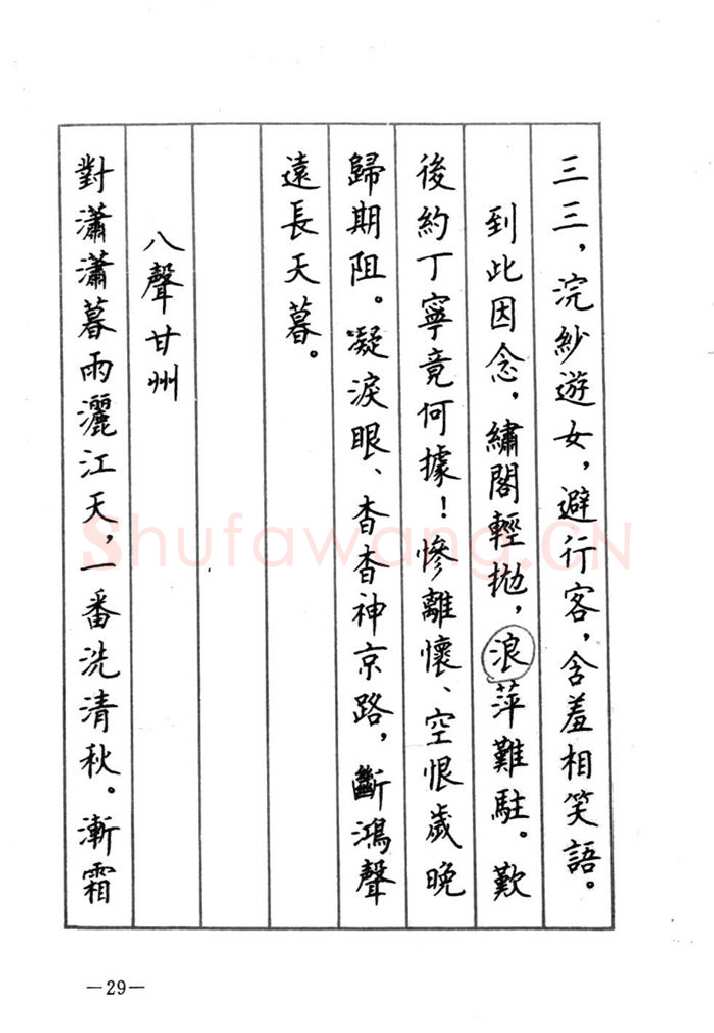 三三，浣紗遊女，避行客，含羞相笑語。
到此因念，繡閣輕拋，浪萍難駐。歎
後約丁寧竟何據！慘離懷、空恨歲晚
歸期阻。凝淚眼、杳杳神京路，斷鴻聲
遠長天暮。
八聲甘州
對瀟瀟暮雨灑江天，一番洗清秋。漸霜
Shufawang.CN
—29—